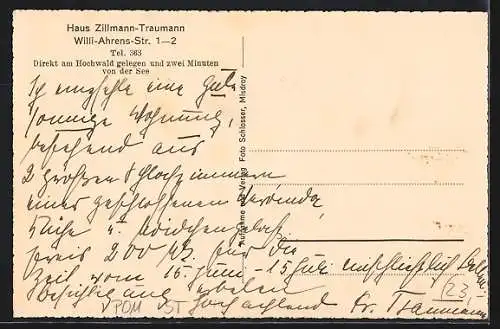 Haus Zillmann-Traumann
Willi-Ahrens-Str. 1—2
Tel. 363
Direkt am Hochwald gelegen und zwei Minuten
von der See
Ich empfehle eine gute
sonnige Wohnung,
bestehend aus
2 großen Schlafzimmern
einer geschlossenen Veranda
Küche u. Mädchengelaß
Preis 200 für die
Zeit vom 15. Juni - 15 Juli
Besichtigung erbeten
Hochachtend Fr. Traumann
Aufnahme und Verlag Foto Schlosser, Misdroy
23
POM